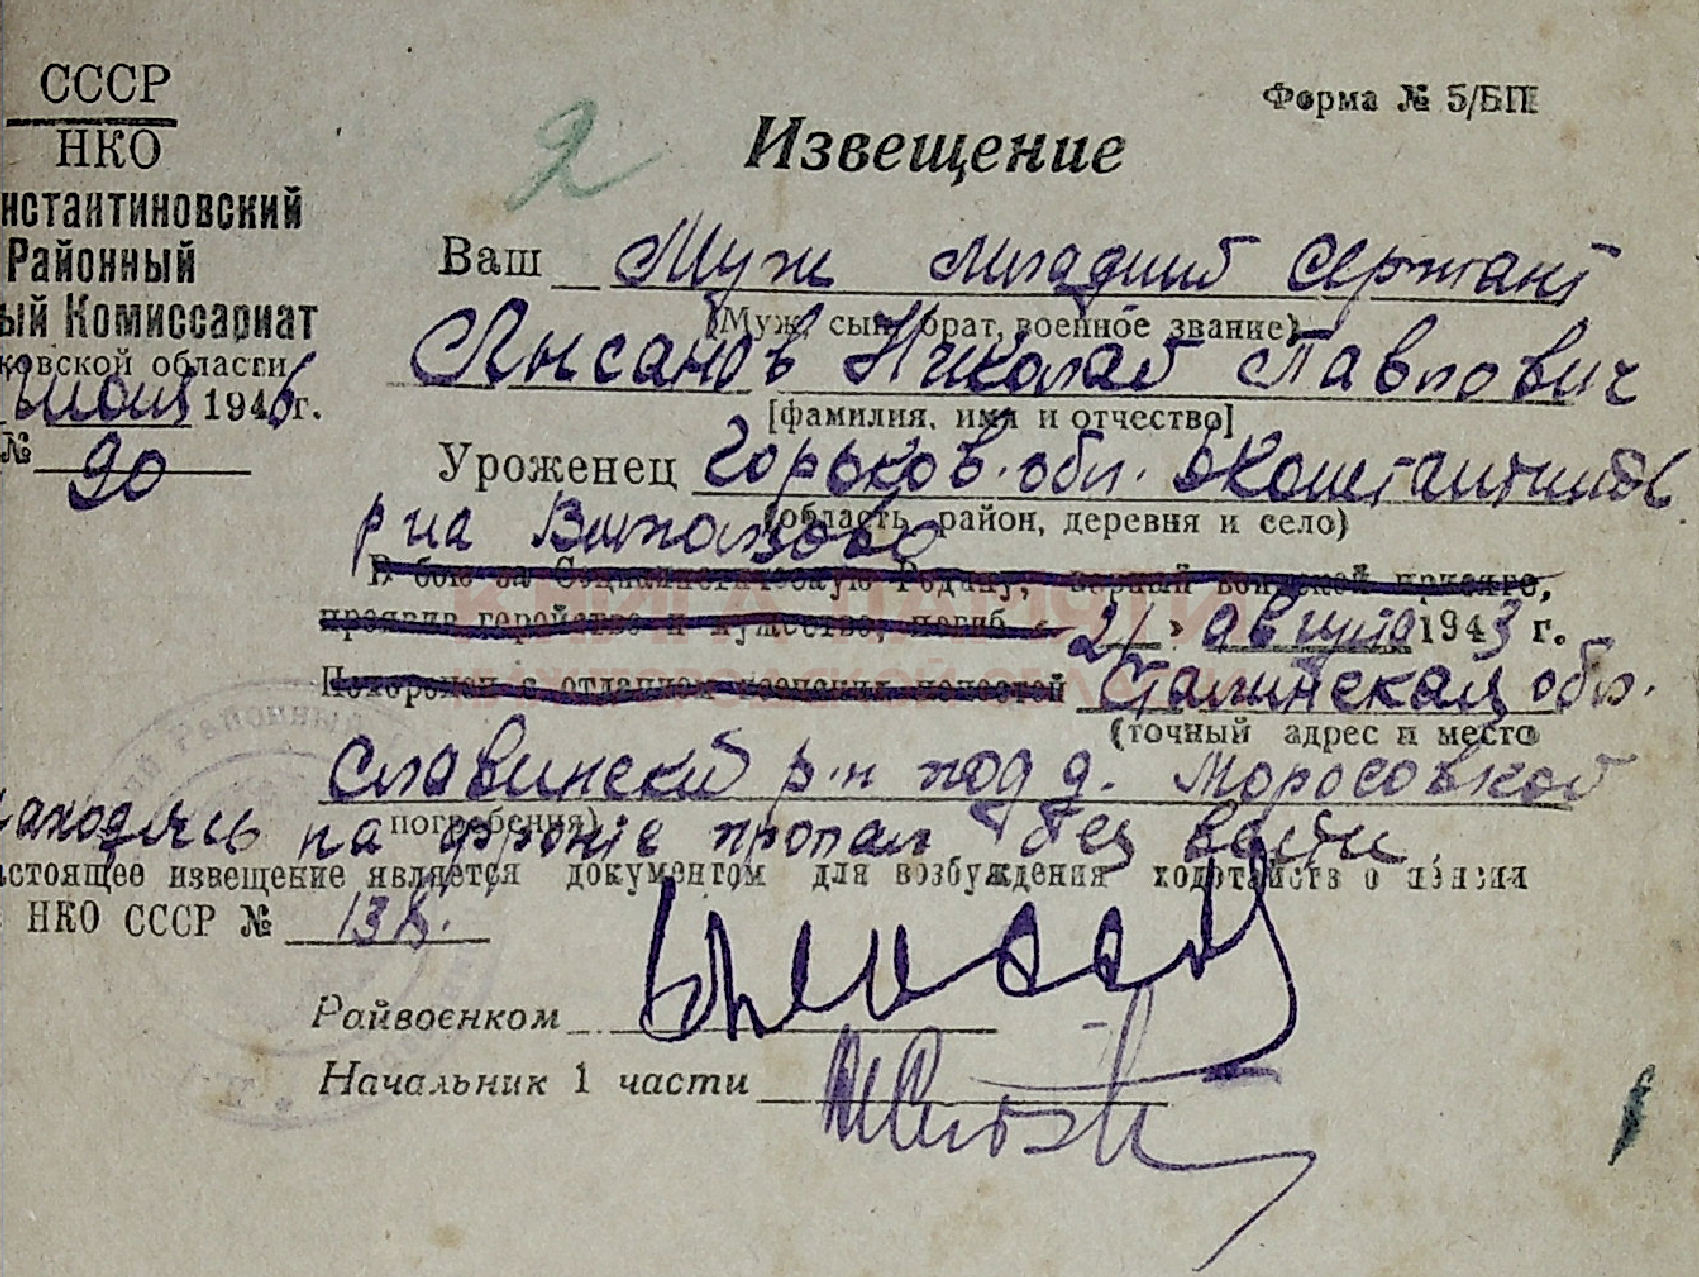 СССР
НКО
нстантиновский
Районный
ый Комиссариат
ковской области
июля 1946 г.
№ 90
Форма № 5/БП
2
Извещение
Ваш Муж младший сержант
(Муж, сын, брат, военное звание)
Лысанов Николай Павлович
[фамилия, имя и отчество]
Уроженец Горьков. обл. Константинов
(область, район, деревня и село)
р на
В бою за Социалистическую Родину, верный воинской присяге,
проявив геройство и мужество, погиб « 21 » августа 1943 г.
Похоронен с отданием воинских почестей Сталинская обл.
(точный адрес и место
Славинский р-н под д. Моросовкой
погребения)
находясь на фронте пропал без вести
астоящее извещение является документом для возбуждения ходатайств о пенсии
НКО СССР №
Райвоенком
Начальник 1 части
КНИГА ПАМЯТИ
НИЖЕГОРОДСКОЙ ОБЛАСТИ